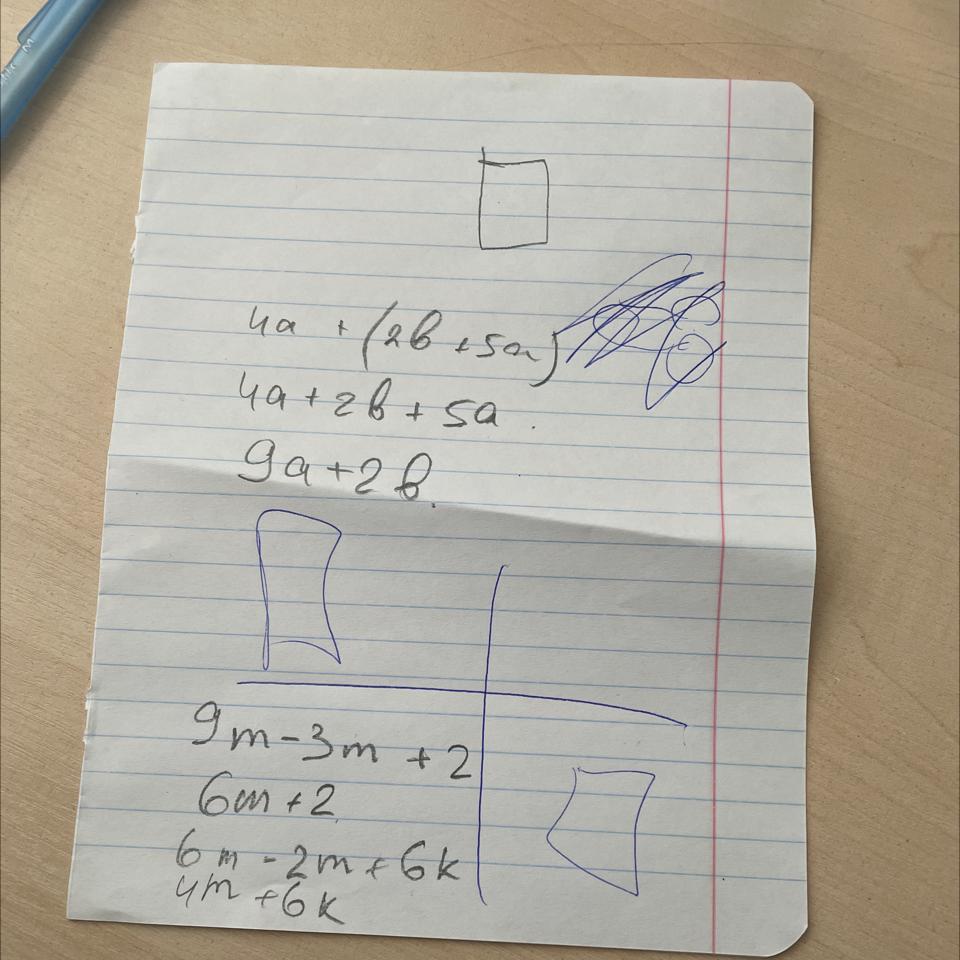 4a + (2b + 5a)
4a + 2b + 5a
9a + 2b
9m - 3m + 2
6m + 2
6m - 2m + 6k
4m + 6k